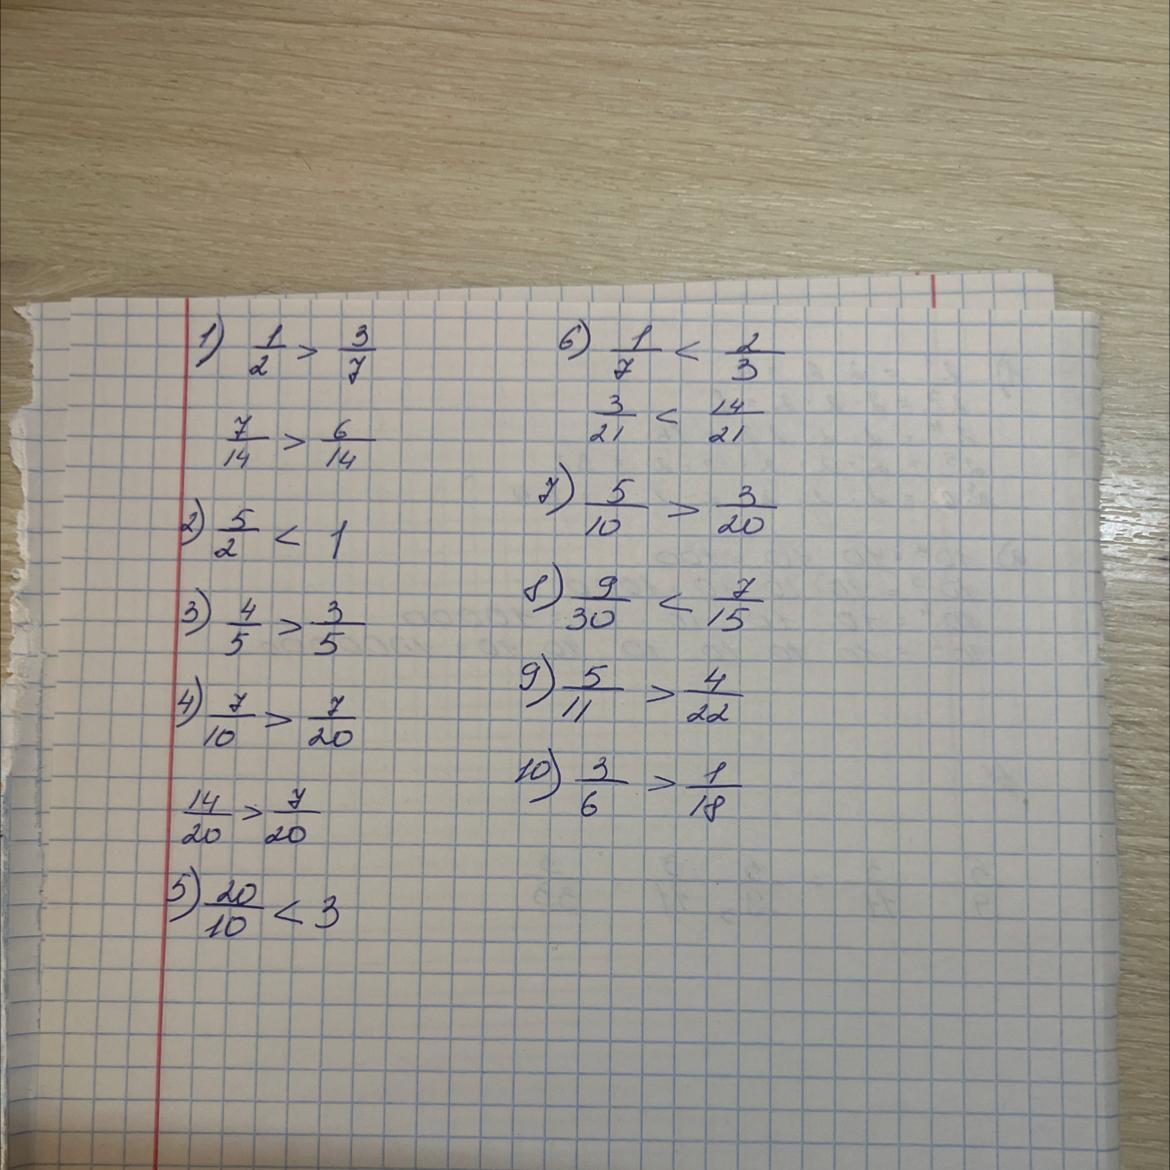 1) 1/2 > 3/7
7/14 > 6/14
2) 5/2 < 1
3) 4/5 > 3/5
4) 7/10 > 7/20
14/20 > 7/20
5) 20/10 < 3
6) 1/7 < 2/3
3/21 < 14/21
7) 5/10 > 3/20
8) 9/30 < 7/15
9) 5/11 > 4/22
10) 3/6 > 1/18